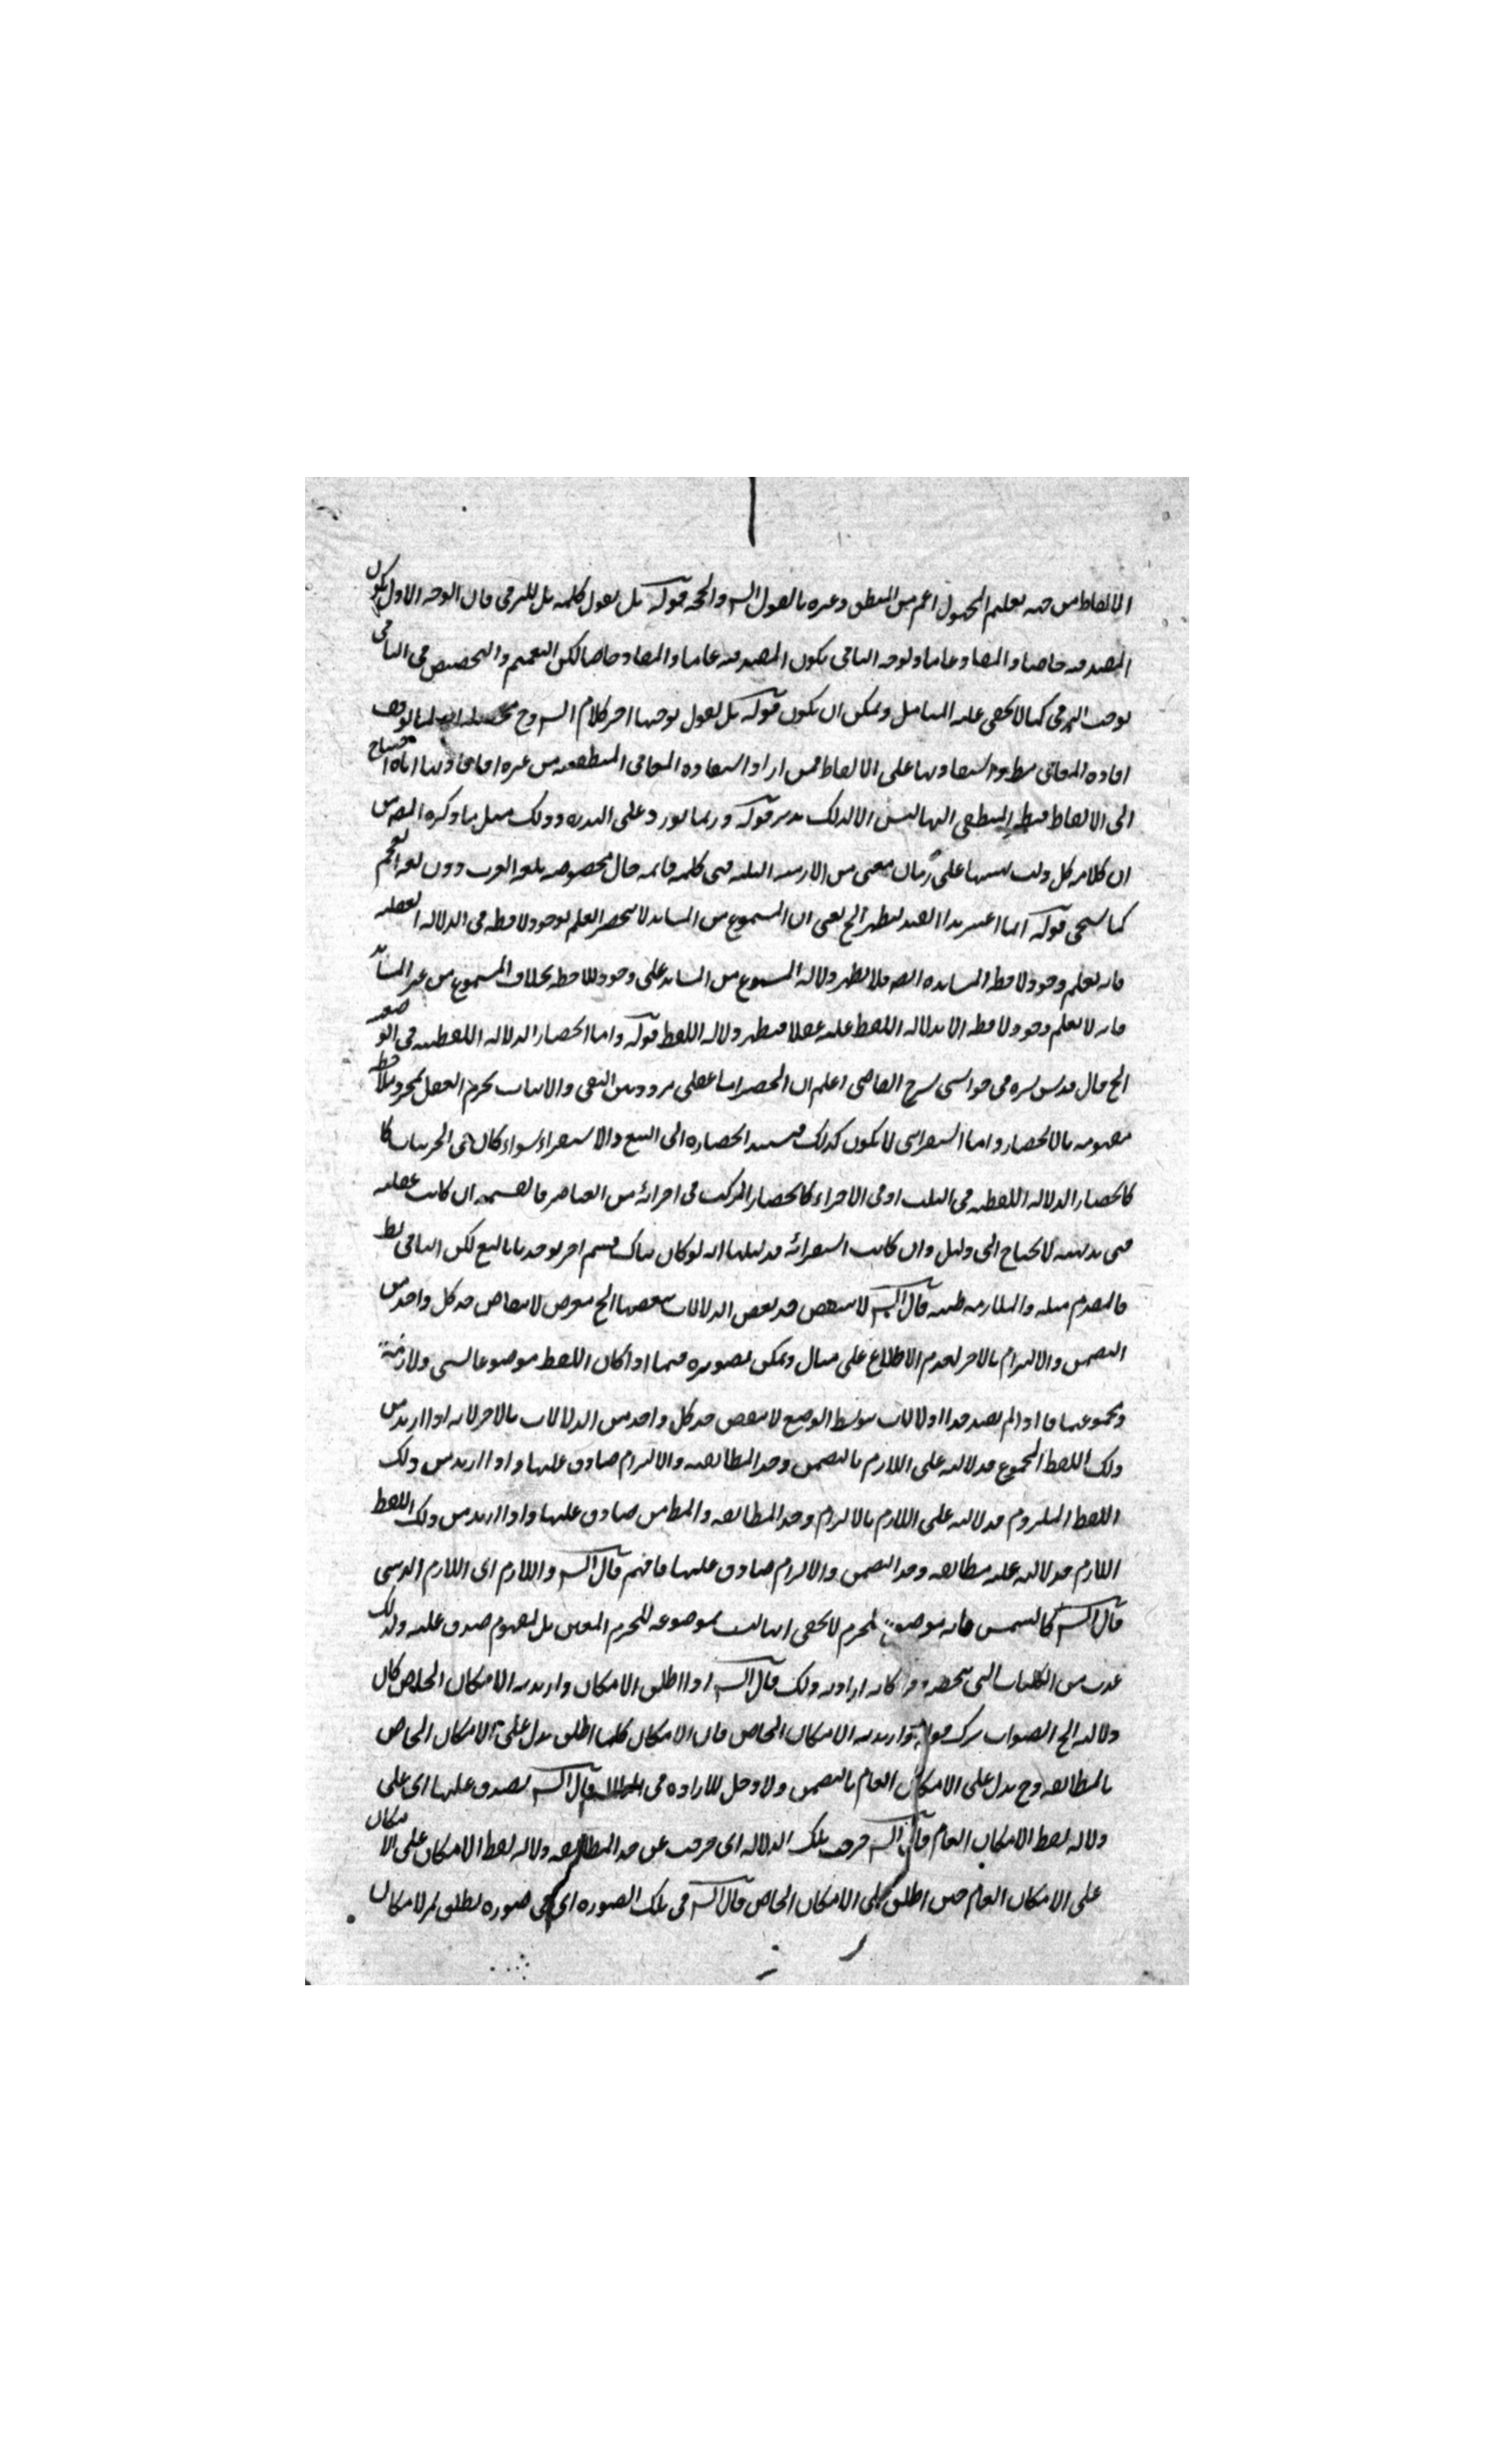 الالفاظ من جهة تعليم المجهول اعم من المنطق وغيره بالقول الش والحجة قوله بل نقول كلمة بل للترقى فان الوجه الاول يكون
المفيد فيه خاصا والمفاد عاما وتوجه الثانى يكون المفيد فيه عاما والمفاد خاصا لكن التعميم والتخصيص فى الثانى
يوجب الترقى كما لا يخفى على المتامل ويمكن ان يكون قوله بل نقول توجيها اخر كلام الش وح
افادة المعانى واستفادتها على الالفاظ فمن اراد استفادة المعانى المنطقية من غيره او افادتها اياه احتاج
الى الالفاظ المنطقى اليها ليس الا لذلك تدبر قوله وربما يورد على الندرة وذلك مثل ما ذكره المص من
ان كلامه كل دلت بهيئتها على زمان معين من الازمنة الثلثة فهى كلمة فانه حال مخصوصة بلغة العرب دون لغة العجم
كما سيجى قوله انما اعتبر هذا القيد ليظهر الخ يعنى ان المسموع من المشاهد لا ينحصر العلم بوجود لافظه فى الدلالة العقلية
فانه يعلم وجود لافظه المشاهدة ايضا فلا يظهر دلالة المسموع من المشاهد على وجود اللافظ بخلاف المسموع من غير المشاهد
فانه لا يعلم وجود لافظه الا بدلالة اللفظ عليه عقلا فيظهر دلالة اللفظ قوله واما انحصار الدلالة اللفظية فى الوضعية
الخ قال قدس سره فى حواشى شرح القاضى اعلم ان الحصر اما عقلى مردد بين النفى والاثبات يجزم العقل بمجرد ملاحظة
مفهومه بالانحصار واما استقرائى لا يكون كذلك فيستند انحصاره الى التتبع والاستقراء سواء كان فى الجزئيات كا
كانحصار الدلالة اللفظية فى الثلث او فى الاجزاء كانحصار المركب فى اجزائه من العناصر فالقسمة ان كانت عقلية
فهى بديهية لا تحتاج الى دليل وان كانت استقرائية فدليلها انه لو كان هناك قسم اخر لوجد بالتتبع لكن التالى بط
فالمقدم مثله والملازمة ظنية قال الش لا ينتقض حد بعض الدلالات ببعضها الخ تعرض لانتقاض حد كل واحد من
التضمن والالتزام بالاخر لعدم الاطلاع على مثال ويمكن تصويره فيما اذا كان اللفظ موضوعا لشئ ولازمه
ومجموعهما فاذا لم يقيد حدود الدلالات بتوسط الوضع لانتقض حد كل واحد من الدلالات بالاخر لانه اذا اريد من
ذلك اللفظ المجموع فدلالته على اللازم بالتضمن وحد المطابقة والالتزام صادق عليها واذا اريد من ذلك
اللفظ الملزوم فدلالته على اللازم بالالتزام وحد المطابقة والتضمن صادق عليها واذا اريد من ذلك اللفظ
اللازم فدلالته عليه مطابقة وحد التضمن والالتزام صادق عليها فافهم قال الش واللازم اى اللازم الذهنى
قال الش كالشمس فانه موضوع للجرم لا يخفى انها ليست بموضوعة للجرم المعين بل لمفهوم صدق عليه ولذلك
عدت من الكليات التى تنحصر وكانه اراد به ذلك قال الش اذا اطلق الامكان واريد به الامكان الخاص كان
دلالته الخ الصواب ترك قوله واريد به الامكان الخاص فان الامكان كلما اطلق يدل على الامكان الخاص
بالمطابقة وح يدل على الامكان العام بالتضمن ولا دخل للارادة فى قال الش لصدق عليها اى على
دلالة لفظ الامكان العام قال الش خرجت تلك الدلالة اى خرجت عن حد المطابقة دلالة لفظ الامكان على الامكان
على الامكان العام حين اطلق على الامكان الخاص قال الش فى تلك الصورة اى فى صورة يطلق الامكان